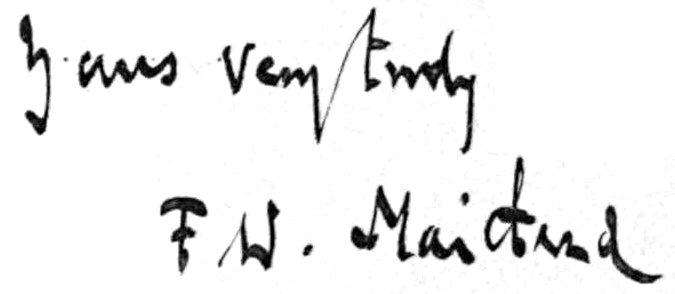 Yours very truly
F W. Maitland